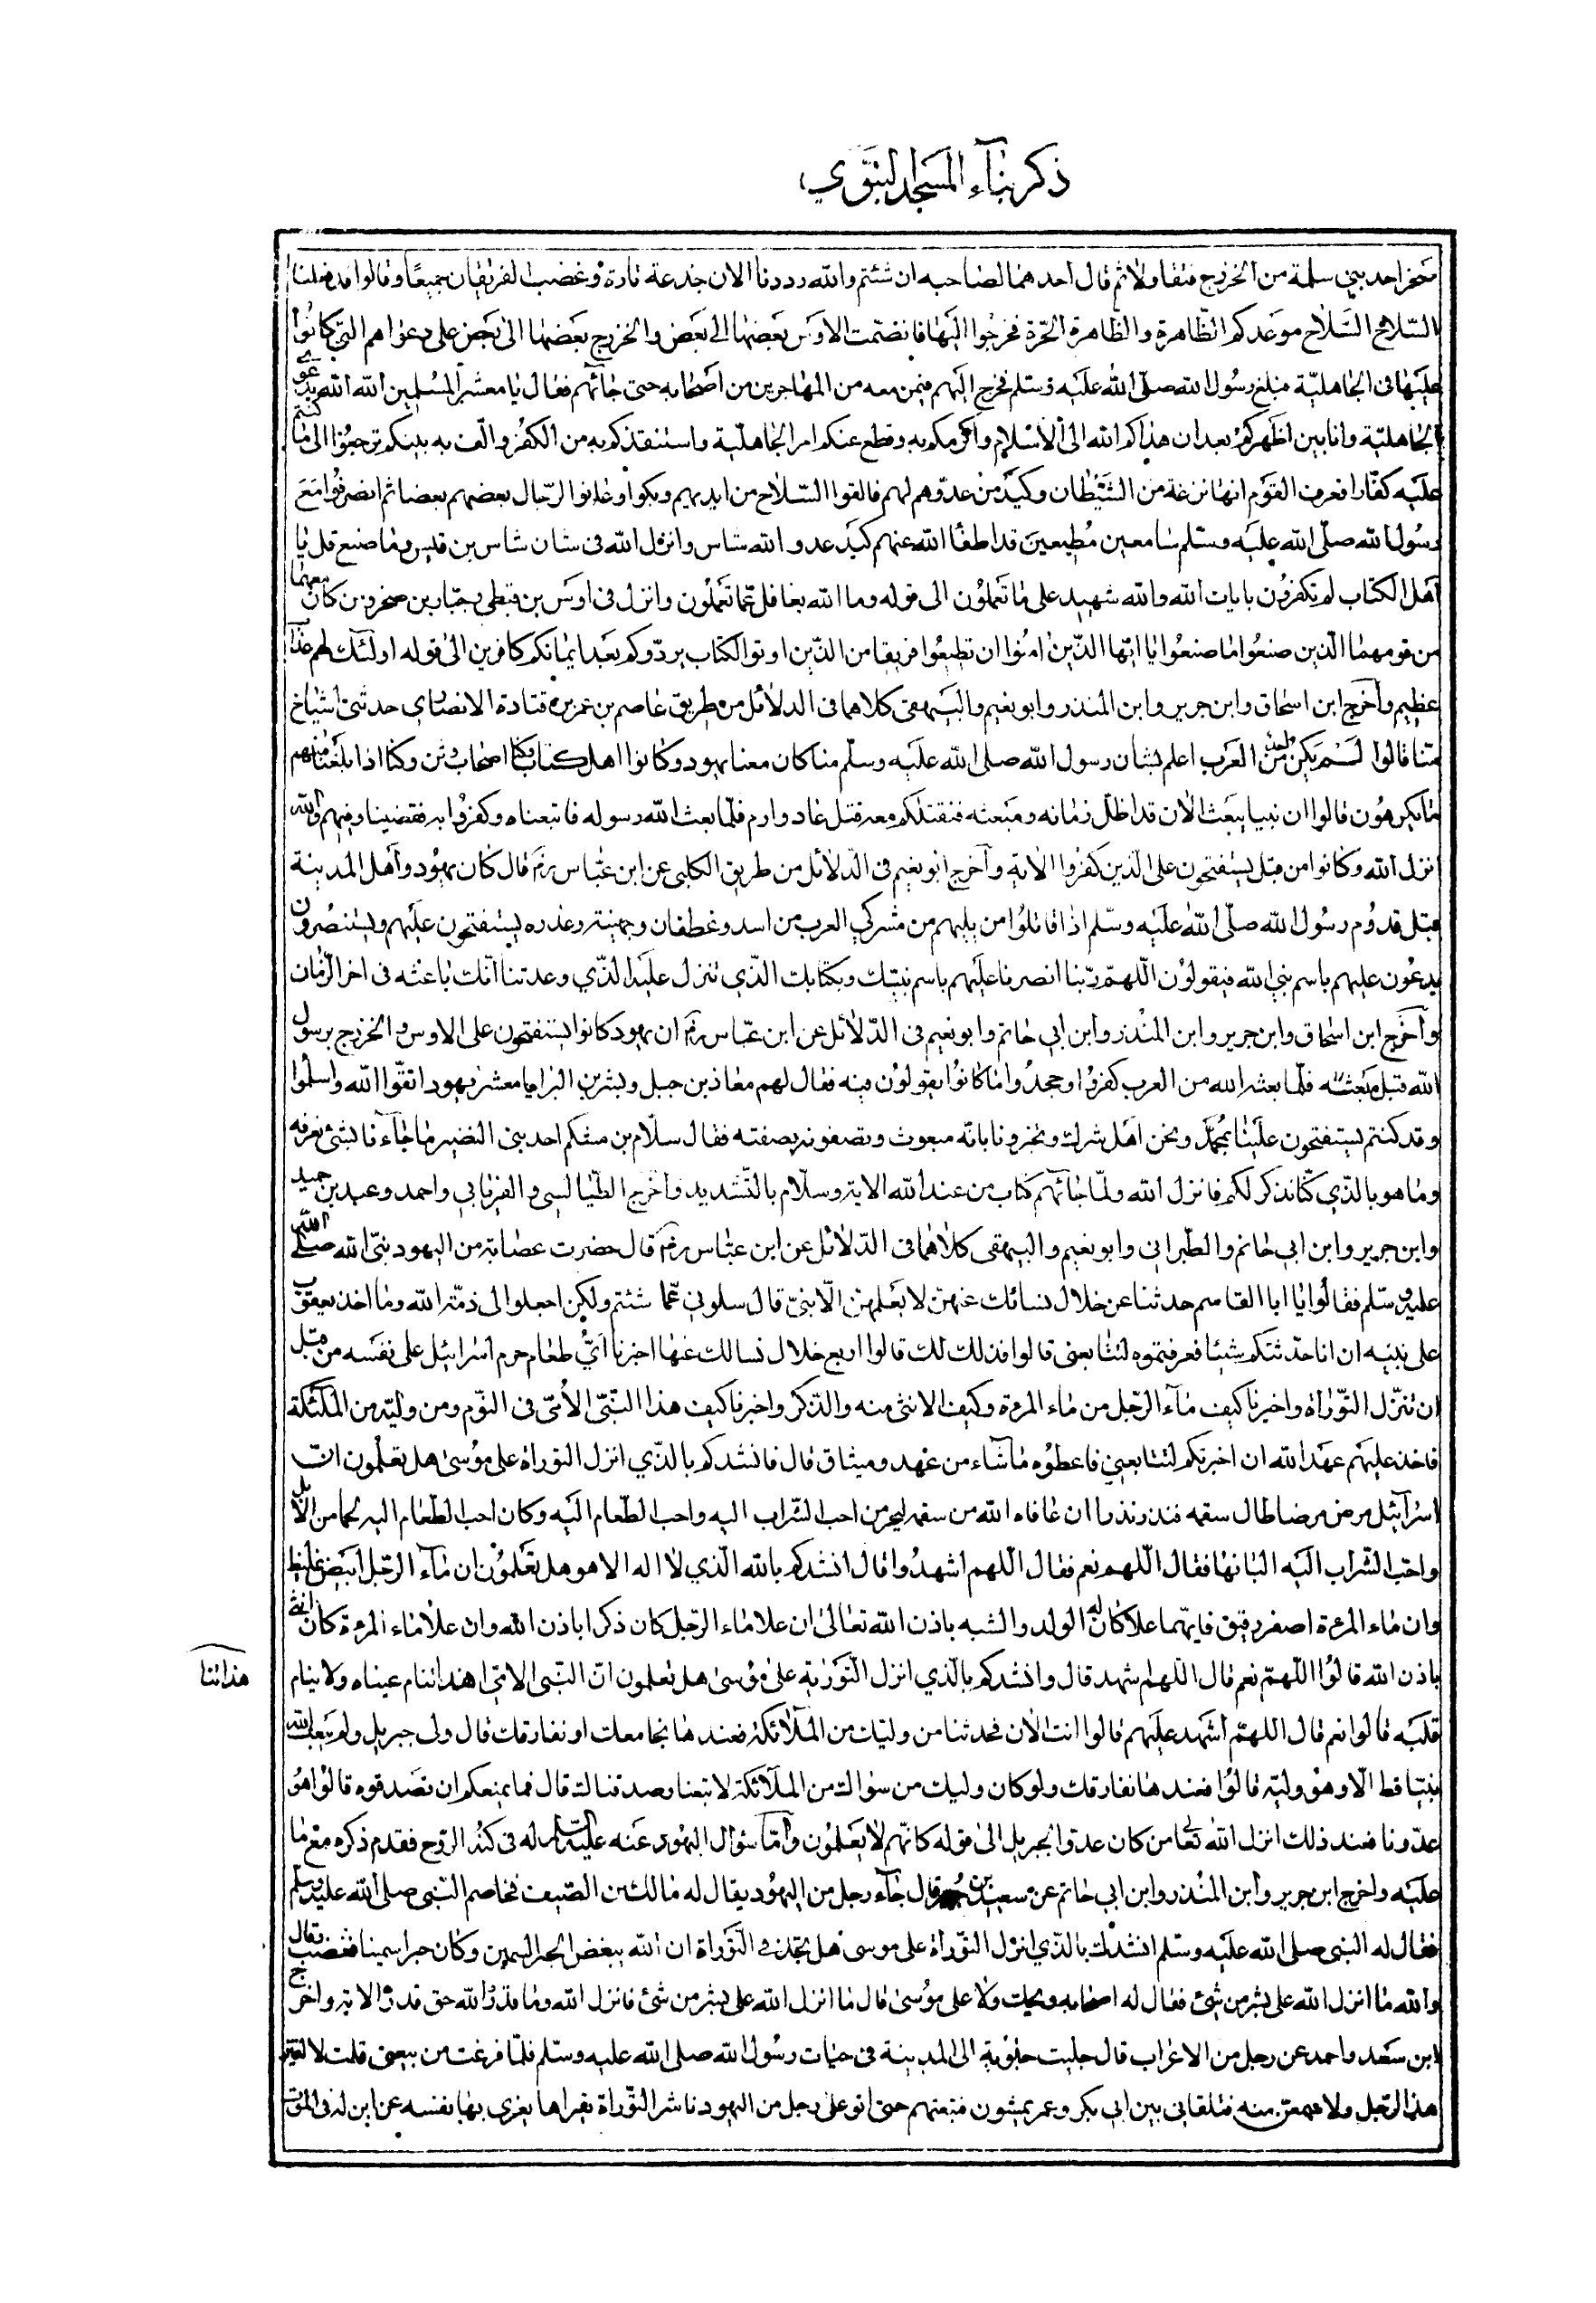 ذكر بناء المسجد النبوي
صخر احد بني سلمة من الخزرج فتقاولا ثم قال احدهما لصاحبه ان شئتم والله رددناها الان جذعة وغضب الفريقان جميعا وقالوا قد فعلنا
السلاح السلاح موعدكم الظاهرة والظاهرة الحرة فخرجوا اليها فانضمت الاوس بعضها الى بعض والخزرج بعضها الى بعض على دعواهم التي كانوا
عليها في الجاهلية فبلغ رسول الله صلى الله عليه وسلم فخرج اليهم فيمن معه من المهاجرين من اصحابه حتى جائهم فقال يا معشر المسلمين الله الله بدعوى
الجاهلية وانا بين اظهركم بعد ان هذاكم الله الى الاسلام واكرمكم به وقطع عنكم امر الجاهلية واستنقذكم به من الكفر والف به بينكم ترجعوا الى ما كنتم
عليه كفارا فعرف القوم انها نزغة من الشيطان وكيد من عدوهم لهم فالقوا السلاح من ايديهم وبكوا وعانوا الرجال بعضهم بعضا ثم انصرفوا مع
رسول الله صلى الله عليه وسلم سامعين مطيعين قد اطفأ الله عنهم كيد عدو الله شاس وانزل الله في شان شاس بن قيس وما صنع قل يا
اهل الكتاب لم تكفرون بايات الله والله شهيد على ما تعملون الى قوله وما الله بغافل عما تعملون وانزل في اوس بن قبطي وجبار بن صخر ومن كان معهما
من قومهما الذين صنعوا ما صنعوا يا ايها الذين امنوا ان تطيعوا فريقا من الذين اوتوا الكتاب يردوكم بعد ايمانكم كافرين الى قوله اولئك لهم عذاب
عظيم واخرج ابن اسحاق وابن جرير وابن المنذر وابو نعيم والبيهقي كلاهما في الدلائل من طريق عاصم بن عمر بن قتادة الانصاري حدثني اشياخ
منا قالوا لم يكن احد من العرب اعلم بشان رسول الله صلى الله عليه وسلم منا كان معنا يهود وكانوا اهل كتاب وكنا اصحاب وثن وكنا اذا بلغنا منهم
ما يكرهون قالوا ان نبيا يبعث الان قد اظل زمانه ومبعثه فنقتلكم معه قتل عاد وارم فلما بعث الله رسوله فاتبعناه وكفروا به ففينا وفيهم والله
انزل الله وكانوا من قبل يستفتحون على الذين كفروا الاية واخرج ابو نعيم في الدلائل من طريق الكلبي عن ابن عباس رضم قال كان يهود واهل المدينة
قبل قدوم رسول الله صلى الله عليه وسلم اذا قاتلوا من يليهم من مشركي العرب من اسد وغطفان وجهينة وعذره يستفتحون عليهم ويستنصرون
يدعون عليهم باسم نبي الله فيقولون اللهم ربنا انصرنا عليهم باسم نبيك وبكتابك الذي تنزل عليه الذي وعدتنا انك باعثه في اخر الزمان
واخرج ابن اسحاق وابن جرير وابن المنذر وابن ابي حاتم وابو نعيم في الدلائل عن ابن عباس رضم ان يهود كانوا يستفتحون على الاوس والخزرج برسول
الله قبل مبعثه فلما بعثه الله من العرب كفروا وجحدوا ما كانوا يقولون فيه فقال لهم معاذ بن جبل وبشر بن البرا يا معشر يهود اتقوا الله واسلموا
وقد كنتم تستفتحون علينا بمحمد ونحن اهل شرك وتخبرونا بانه مبعوث وتصفونه بصفته فقال سلام بن مشكم احد بني النضير ما جاءنا بشئ نعرفه
وما هو بالذي كنا نذكر لكم فانزل الله ولما جائهم كتاب من عند الله الاية وسلام بالتشديد واخرج الطيالسي والفريابي واحمد وعبد بن حميد
وابن جرير وابن ابي حاتم والطبراني وابو نعيم والبيهقي كلاهما في الدلائل عن ابن عباس رضم قال حضرت عصابة من اليهود نبي الله صلى الله
عليه وسلم فقالوا يا ابا القاسم حدثنا عن خلال نسائلك عنهن لا يعلمهن الا نبي قال سلوني عما شئتم ولكن اجعلوا لي ذمة الله وما اخذ يعقوب
على بنيه ان انا حدثتكم شيئا فعرفتموه لتتابعني قالوا فذلك لك قالوا اربع خلال نسالك عنها اخبرنا اي طعام حرم اسرائيل على نفسه من قبل
ان تنزل التوراة واخبرنا كيف ماء الرجل من ماء المرءة وكيف الانثى منه والذكر واخبرنا كيف هذا النبي الأمي في النوم ومن وليه من الملئكة
فاخذ عليهم عهد الله ان اخبرتكم لتتابعني فاعطوه ما شاء من عهد وميثاق قال فانشدكم بالذي انزل التوراة على موسى هل تعلمون ان
اسرائيل مرض مرضا طال سقمه فنذر نذرا ان عافاه الله من سقمه ليحرمن احب الشراب اليه واحب الطعام اليه وكان احب الطعام اليه لحمان الابل
واحب الشراب اليه البانها فقال اللهم نعم فقال اللهم اشهد وقال انشدكم بالله الذي لا اله الا هو هل تعلمون ان ماء الرجل ابيض غليظ
وان ماء المرءة اصفر رقيق فايهما علا كان له الولد والشبه باذن الله تعالى ان علا ماء الرجل كان ذكرا باذن الله وان علا ماء المرءة كان انثى
باذن الله قالوا اللهم نعم قال اللهم اشهد قال وانشدكم بالذي انزل التورية على موسى هل تعلمون ان النبي الامي هذا تنام عيناه ولا ينام
هذا تنا
قلبه قالوا نعم قال اللهم اشهد عليهم قالوا انت الان فحدثنا من وليك من الملائكة فعندها نجامعك او نفارقك قال ولي جبريل ولم يبعث الله
نبيا قط الا وهو وليه قالوا فعندها نفارقك ولو كان وليك من سواك من الملائكة لاتبعنا وصدقناك قال فما يمنعكم ان تصدقوه قالوا هو
عدونا فعند ذلك انزل الله تعالى من كان عدوا لجبريل الى قوله كانهم لا يعلمون واما سؤال اليهود عنه عليه السلام له في كنه الروح فقدم ذكره مع ما
عليه واخرج ابن جرير وابن المنذر وابن ابي حاتم عن سعيد بن قال جاء رجل من اليهود يقال له مالك بن الصيف فخاصم النبي صلى الله عليه وسلم
فقال له النبي صلى الله عليه وسلم انشدك بالذي انزل التوراة على موسى هل تجد في التوراة ان الله يبغض الحبر السمين وكان حبرا سمينا فغضب وقال
والله ما انزل الله على بشر من شئ فقال له اصحابه ويحك ولا على موسى قال ما انزل الله على بشر من شئ فانزل الله وما قدروا الله حق قدره الاية واخرج
ابن سعد واحمد عن رجل من الاعراب قال جلبت حلوبة الى المدينة في حيات رسول الله صلى الله عليه وسلم فلما فرغت من بيعتي قلت لالقين
هذا الرجل ولاسمعن منه فتلقاني بين ابي بكر وعمر يمشون فتبعتهم حتى اتو على رجل من اليهود ناشر التوراة يقراها يعزي بها نفسه عن ابن له في الموت